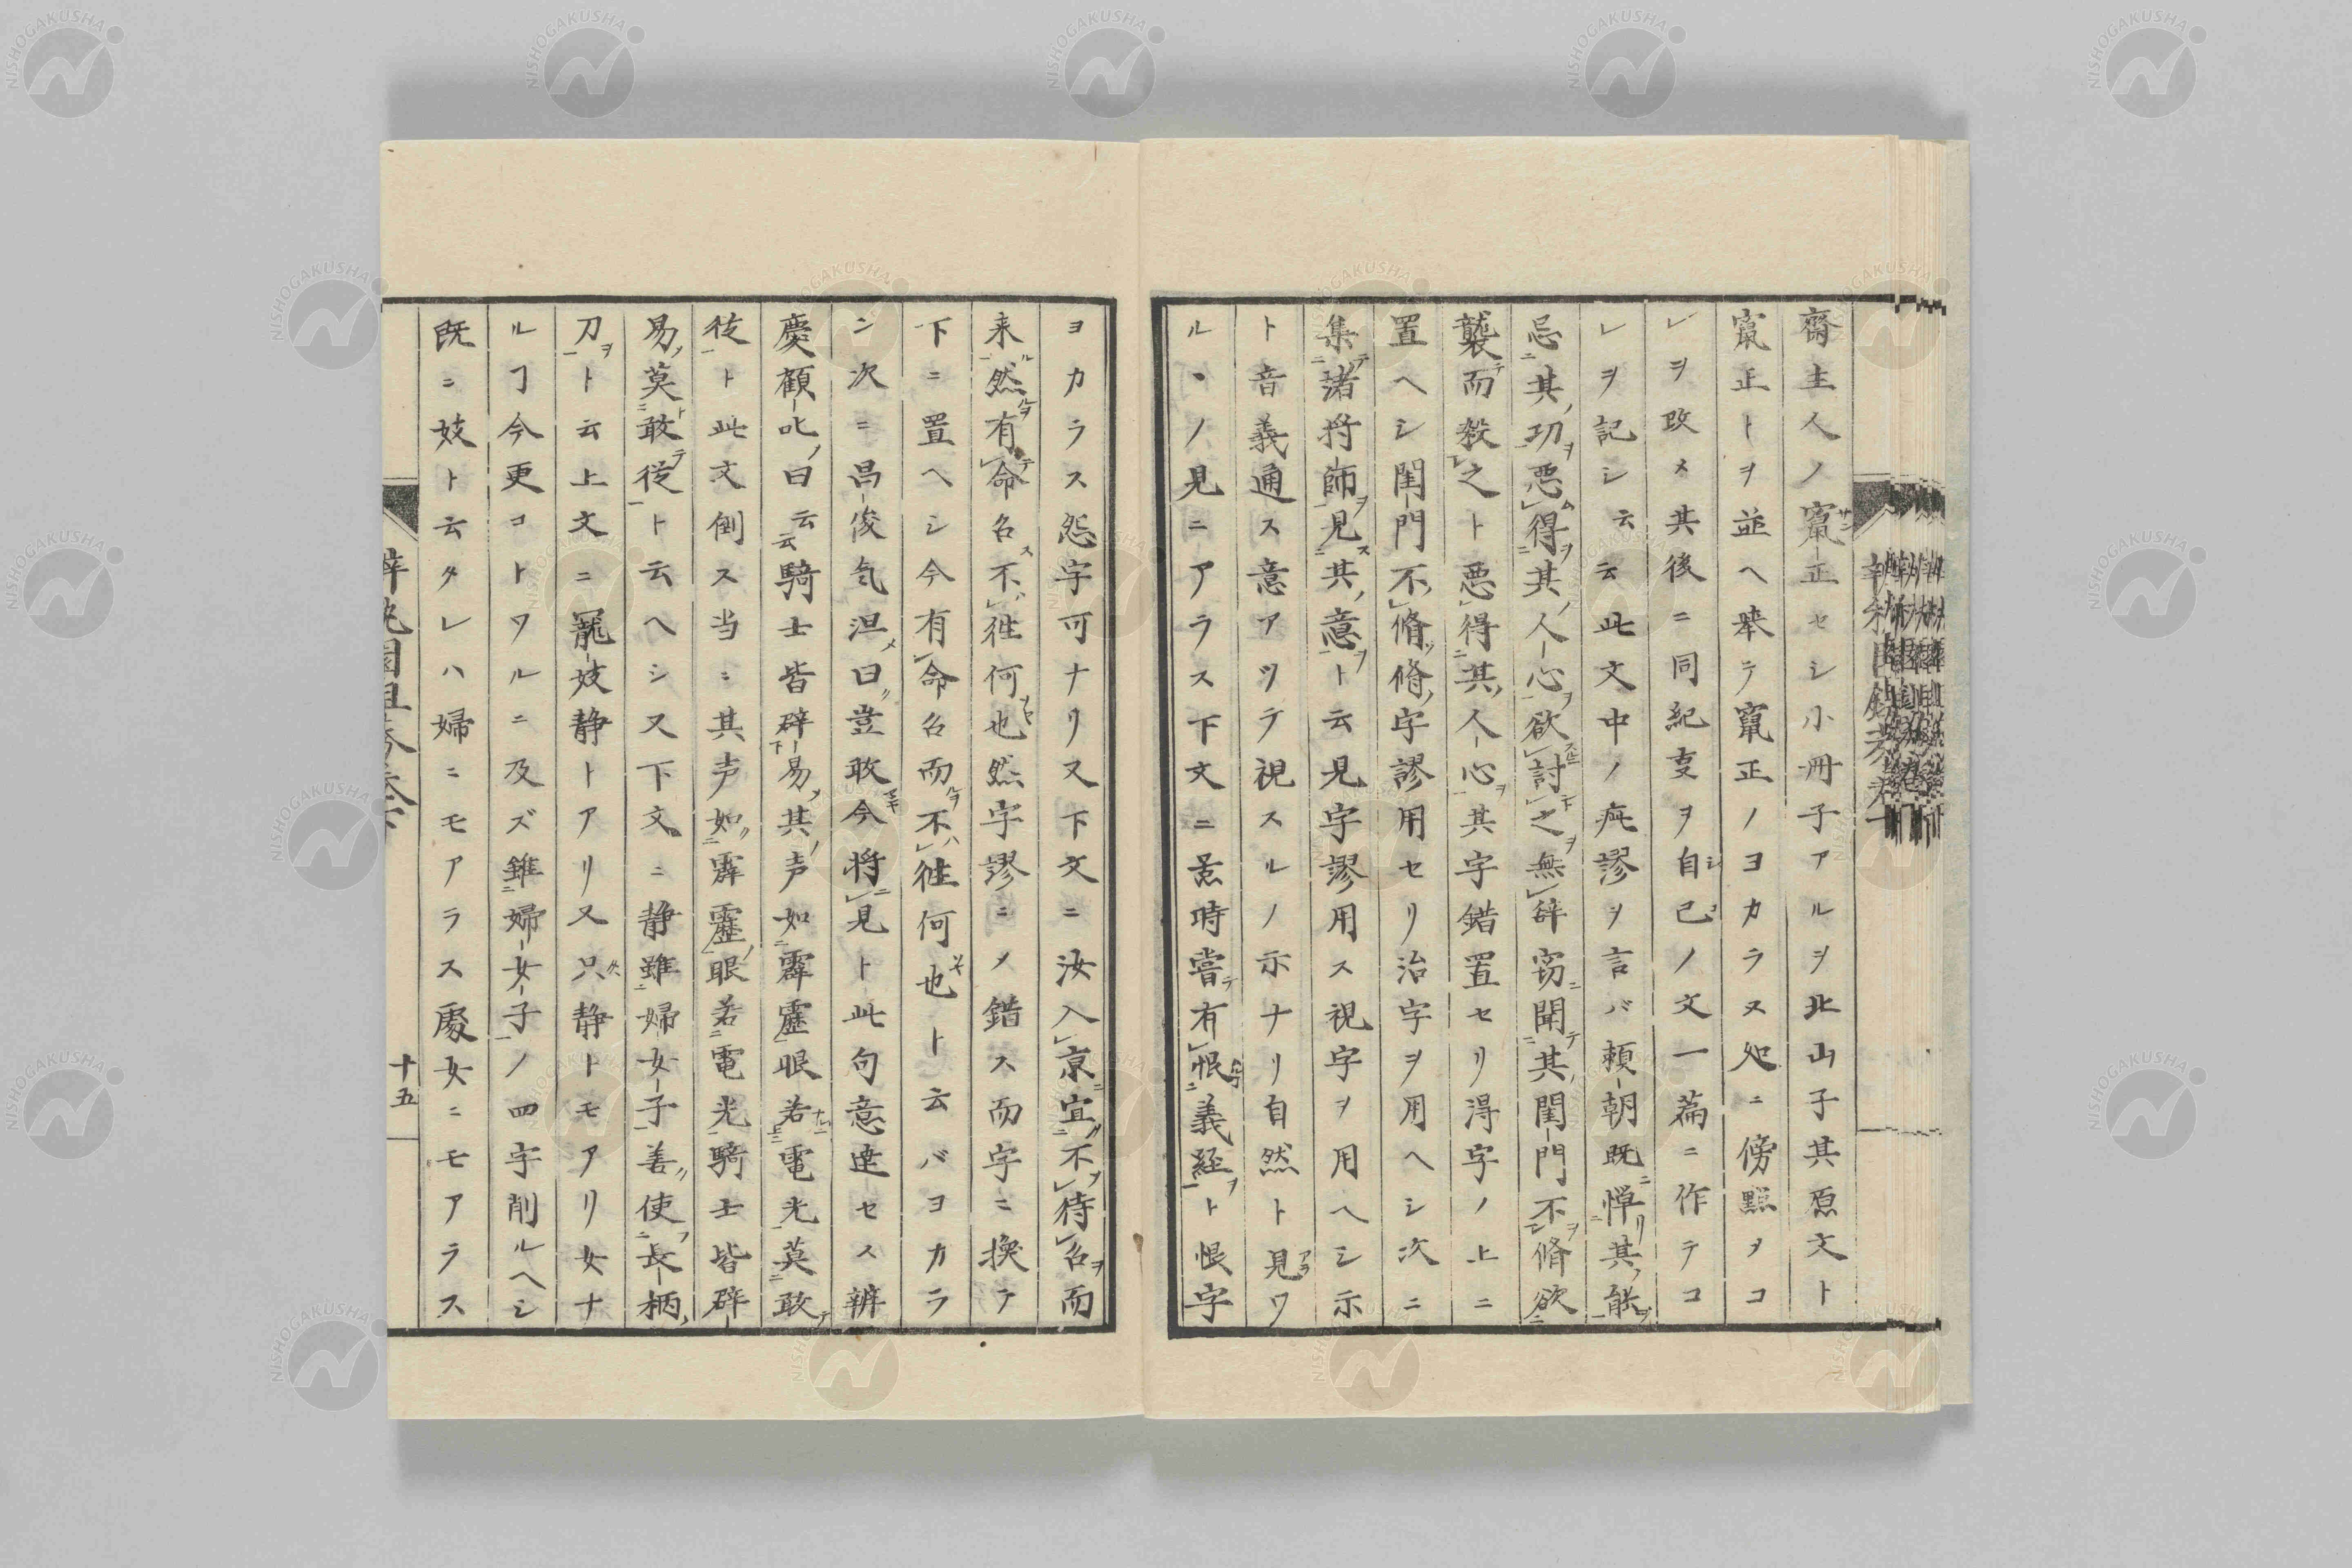 齋主人ノ竄正セシ小冊子アルヲ北山子其原文ト
竄正トヲ並ヘ挙テ竄正ノヨカラヌ処ニ傍點ヲコ
レヲ改メ其後ニ同紀事ヲ自己ノ文一篇ニ作テコ
レヲ記シ云云此文中ノ疵謬ヲ言バ頼朝既憚其能
忌其功悪得其人心欲討之無辞窃聞其閨門不脩欲
襲而殺之ト悪得其人心其字錯置セリ得字ノ上ニ
置ヘシ閨門不脩脩字謬用セリ治字ヲ用ヘシ次ニ
集諸将師見其意ト云見字謬用ス視字ヲ用ヘシ示
ト音義通ス意アツテ視スルノ示ナリ自然ト見ワ
ルヽノ見ニアラス下文ニ景時嘗有恨義経ト恨字
ヨカラス怨字可ナリ又下文ニ汝入京宜不待召而
来然有命召不往何也然字謬ニメ錯ス而字ニ換テ
下ニ置ヘシ今有命召而不往何也ト云バヨカラ
ン次ニ昌俊気沮曰豈敢今将見ト此句意達セス辨
慶顧叱曰云云騎士皆辟易其声如霹靂眼若電光莫敢
従ト此文倒ス当ニ其声如霹靂眼若電光騎士皆辟
易莫敢従ト云ヘシ又下文ニ静雖婦女子善使長柄
刀ト云上文ニ寵妓静トアリ又只静トモアリ女ナ
ルヿ今更コトワルニ及ズ雖婦女子ノ四字削ルヘシ
既ニ妓ト云タレハ婦ニモアラス處女ニモアラス
十五
NISHOGAKUSHA